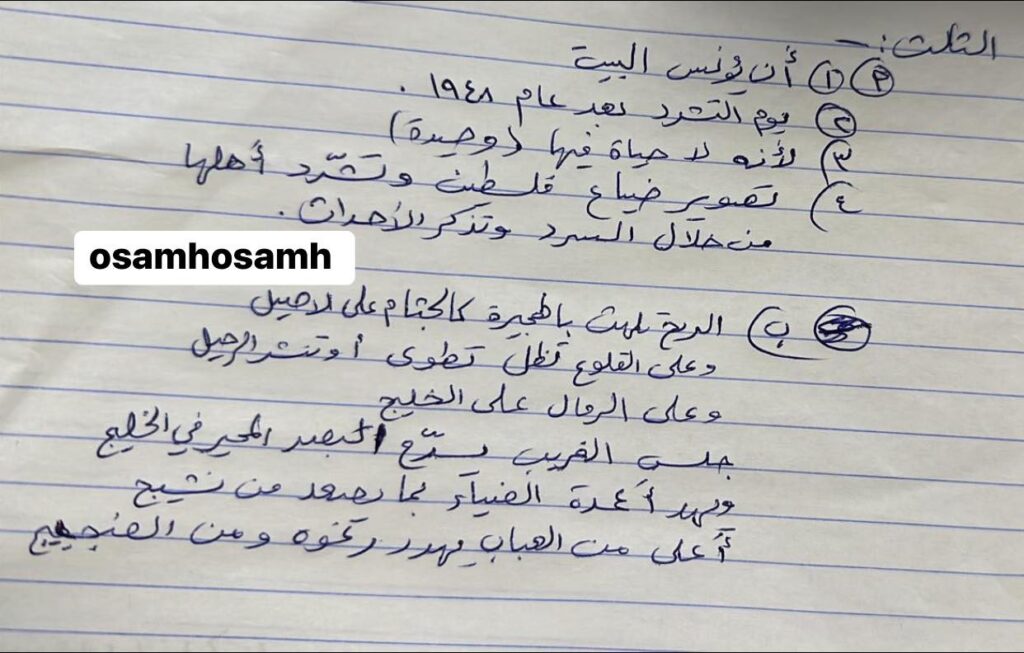 الثالث :-
أ) ① أن يؤنس البيت
② يوم التشرد بعد عام ١٩٤٨ .
٣) لأنه لا حياة فيها (وحيدة)
٤) تصوير ضياع فلسطين وتشرّد أهلها
من خلال السرد وتذكر الأحداث .
osamhosamh
ب) الريح تلهث بالهجيرة كالجثام على الاصيل
وعلى القلوع تظلّ تطوى أو تنشر الرحيل
وعلى الرمال على الخليج
جلس الغريب يسرّح البصر المحير في الخليج
ويهد أعمدة الضياء بما يصعد من نشيج
أعلى من العباب يهدر رغوه ومن الضجيج